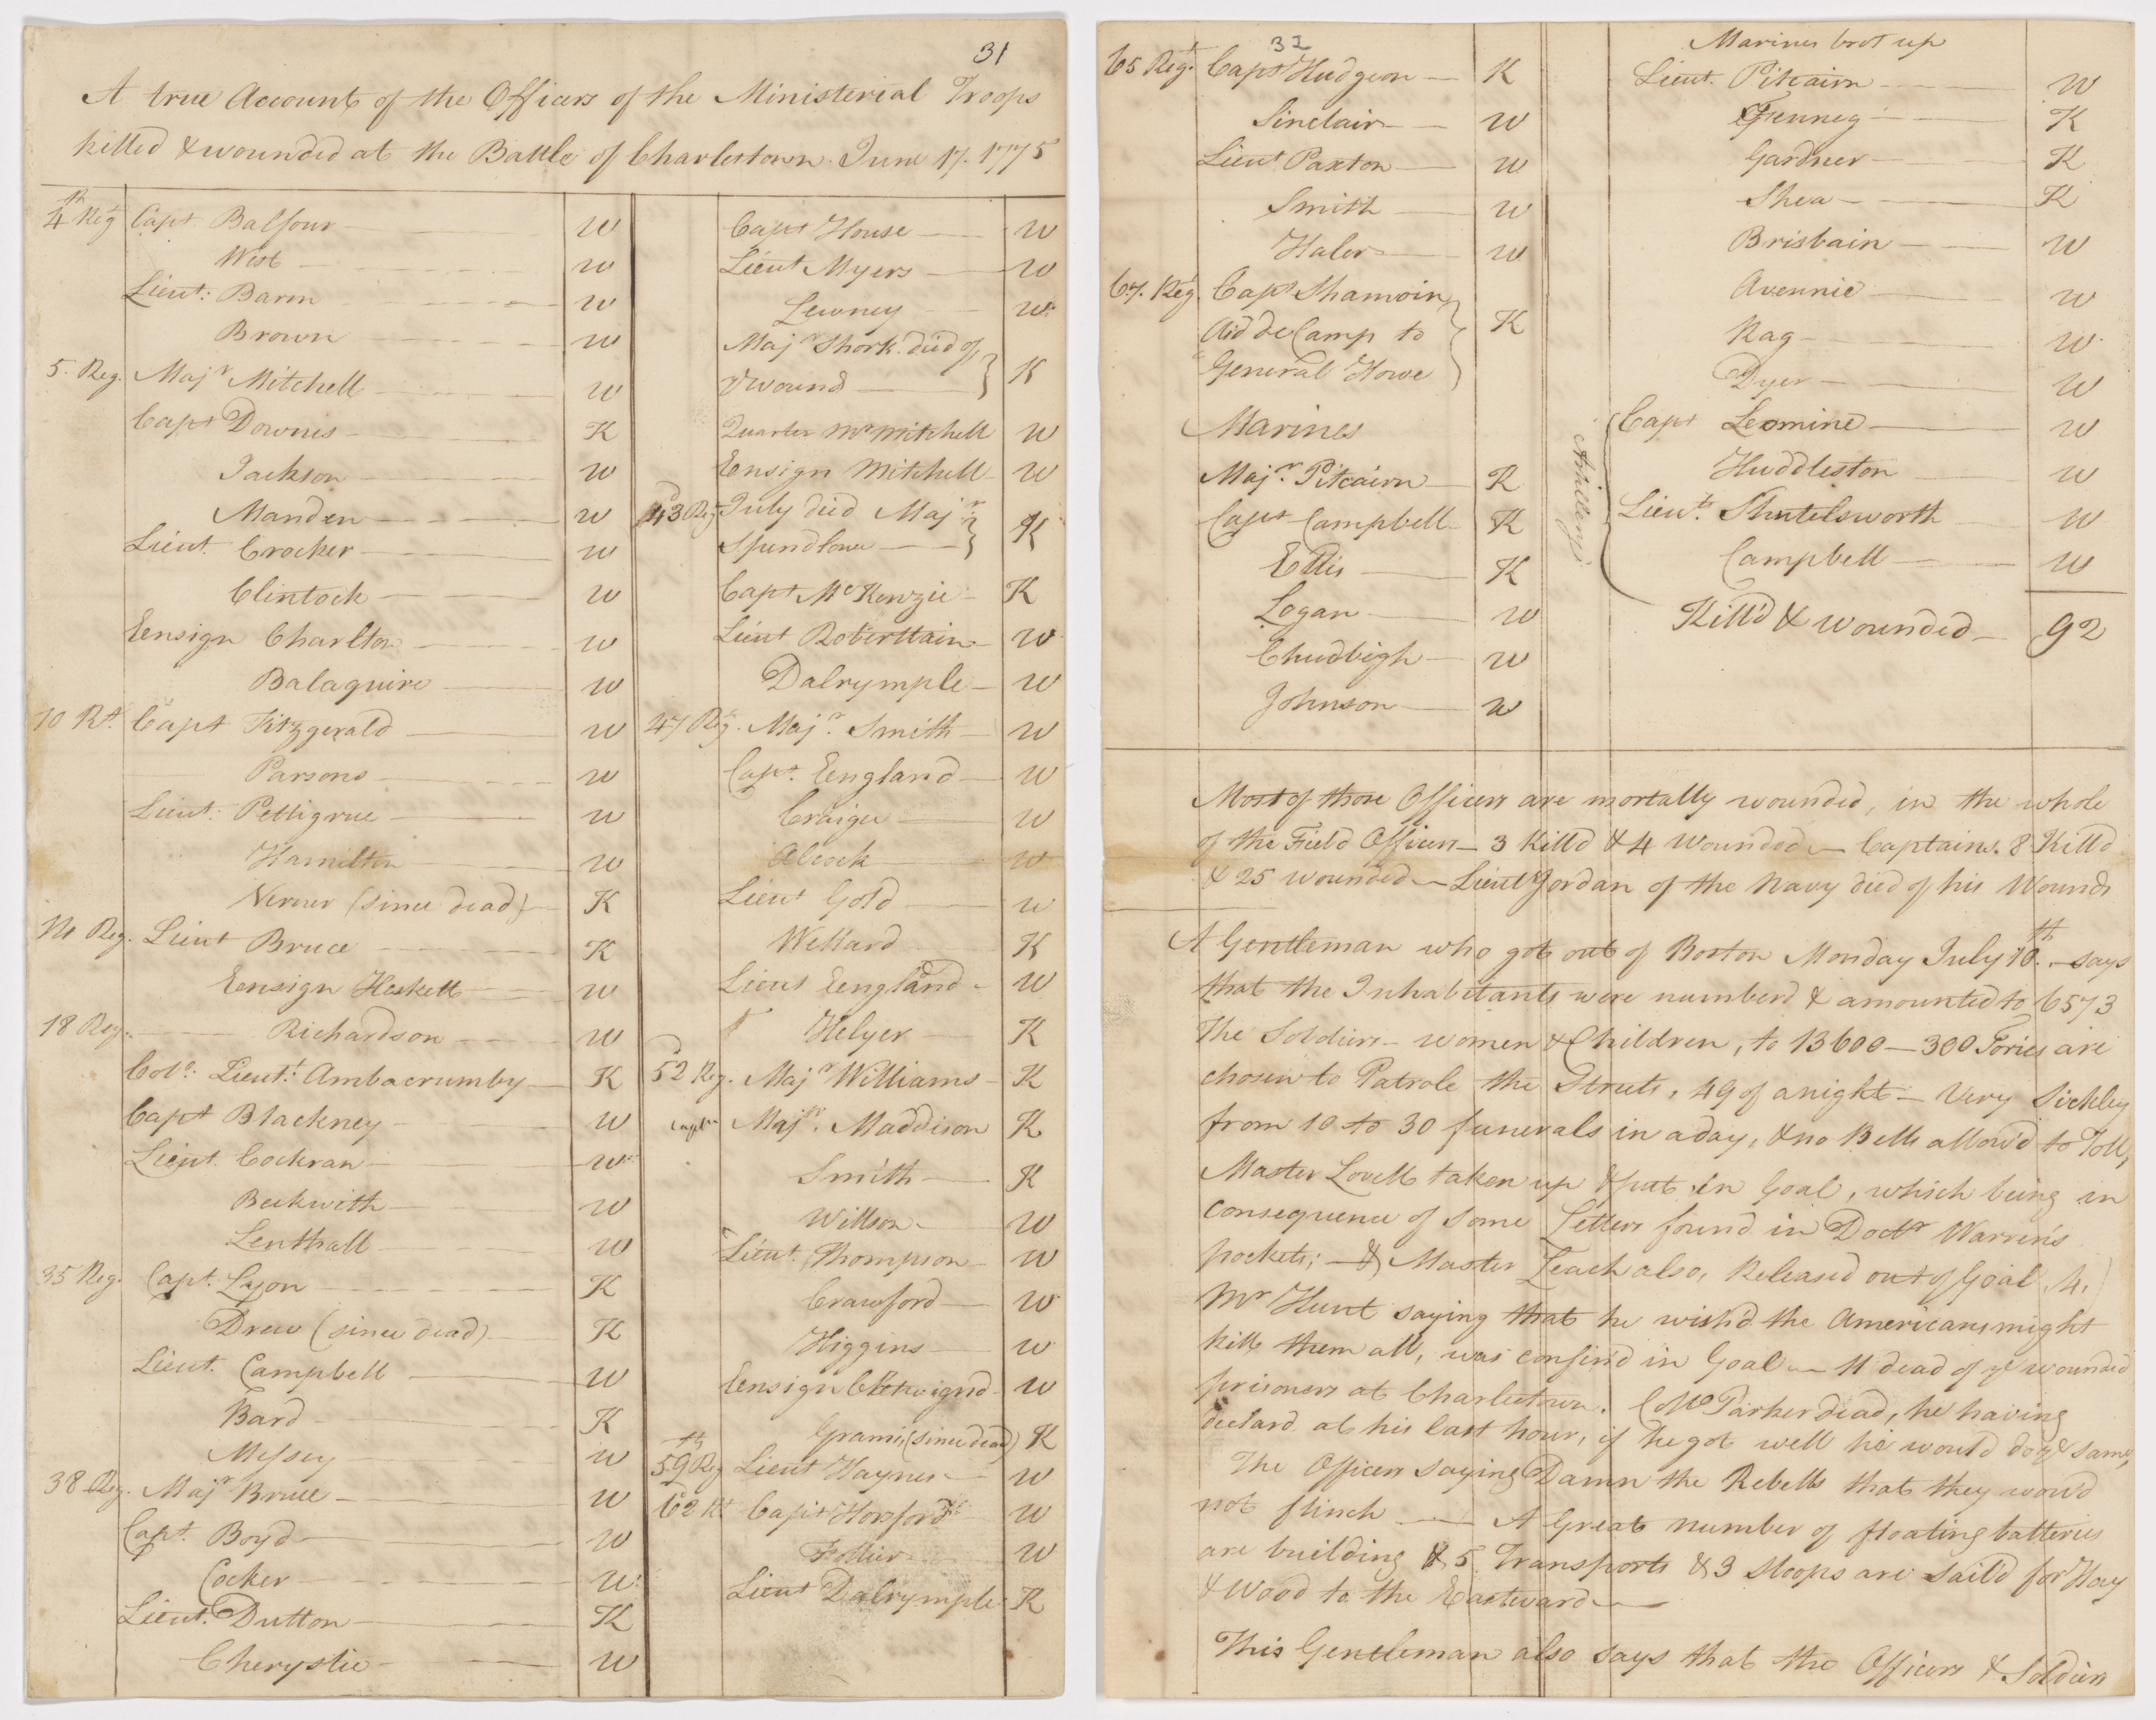 31
A true Account of the Officers of the Ministerial Troops
killed & wounded at the Battle of Charlestown. June 17. 1775
4th Reg Capt Balfour W
West W
Lieut: Barm W
Brown W
5. Reg. Majr Mitchell W
Capt Downes K
Jackson W
Marden W
Lieut. Crocker W
Clintock W
Ensign Charlton W
Balaguire W
10 Rt. Capt Fitzgerald W
Parsons W
Lieut: Pettigrue W
Hamilton W
Verner (since dead) K
14 Reg. Lieut Bruce K
Ensign Heskett W
18 Reg. Richardson W
Colo. Lieutt: Ambacrumby K
Capt Blackney W
Lieut. Cockran W
Beckwith W
Lenthall W
35 Reg. Capt. Lyon K
Drew (since dead) K
Lieut. Campbell W
Bard K
Messey W
38 Reg. Majr Bruce W
Capt. Boyd W
Cocker W
Lieut. Dutton K
Cherystie W
Capt House W
Lieut Myers W
Lewney W
Majr Shork died of
ye wound K
Quarter Mr Mitchell W
Ensign Mitchell W
43d Reg July died Majr
Spendlowe K
Capt McKenzie K
Lieut Roberttain W
Dalrymple W
47 Reg. Majr. Smith W
Capt. England W
Craige W
Alcock W
Lieut Gold W
Wellard K
Lieut England W
Helyer K
52d Reg. Majr Williams K
Captn Majr. Maddison K
Smith K
Willson W
Lieut. Thompson W
Crawford W
Higgins W
Ensign Chetwignd W
Grame (since dead) K
59th Reg Lieut Haynes W
62 Rt Capt Horsford W
Follier W
Lieut Dalrymple K
32
65 Regt. Capt Hudgeon K
Sinclair W
Lieut Paxton W
Smith W
Haler W
67. Reg. Capt Shamoin
Aid de Camp to K
General Howe
Marines
Majr. Pitcairn K
Capt Campbell K
Ellis K
Logan W
Chudleigh W
Johnson W
Marines brot up
Lieut. Pitcairn W
Fenneg K
Gardner K
Shea K
Brisbain W
Avennie W
Rag W
Dyer W
Artillery
Capt Lemoine W
Huddleston W
Lieut. Shutelsworth W
Campbell W
Kill'd & wounded 92
Most of those Officers are mortally wounded, in the whole
of the Field Officers 3 Killd & 4 Wounded Captains. 8 Killd
& 25 wounded Lieut Jordan of the Navy died of his Wounds
A Gentleman who got out of Boston Monday July 10th. says
that the Inhabitants were numberd & amounted to 6573
The Soldiers women & Children, to 13600 300 Tories are
chosen to Patrole the Streets, 49 of a night Very Sickley
from 10 to 30 funerals in a day, & no Bells allow'd to Toll,
Master Lovell taken up & put in Goal, which being in
consequence of some Letters found in Doctr Warren's
pockets; & Master Leach also, Released out of Goal 4.
Mr Hunt saying that he wish'd the Americans might
kill them all, was confin'd in Goal 11 dead of ye wounded
prisoners at Charlestown. Collo Parker dead, he having
declard at his last hour, if he got well he would do ye same,
The Officers saying Damn the Rebells that they wou'd
not flinch A Great number of floating batteries
are building & 5 Transports & 3 Sloops are Sail'd for Hay
& Wood to the Eastward
This Gentleman also says that the Officers & Soldiers